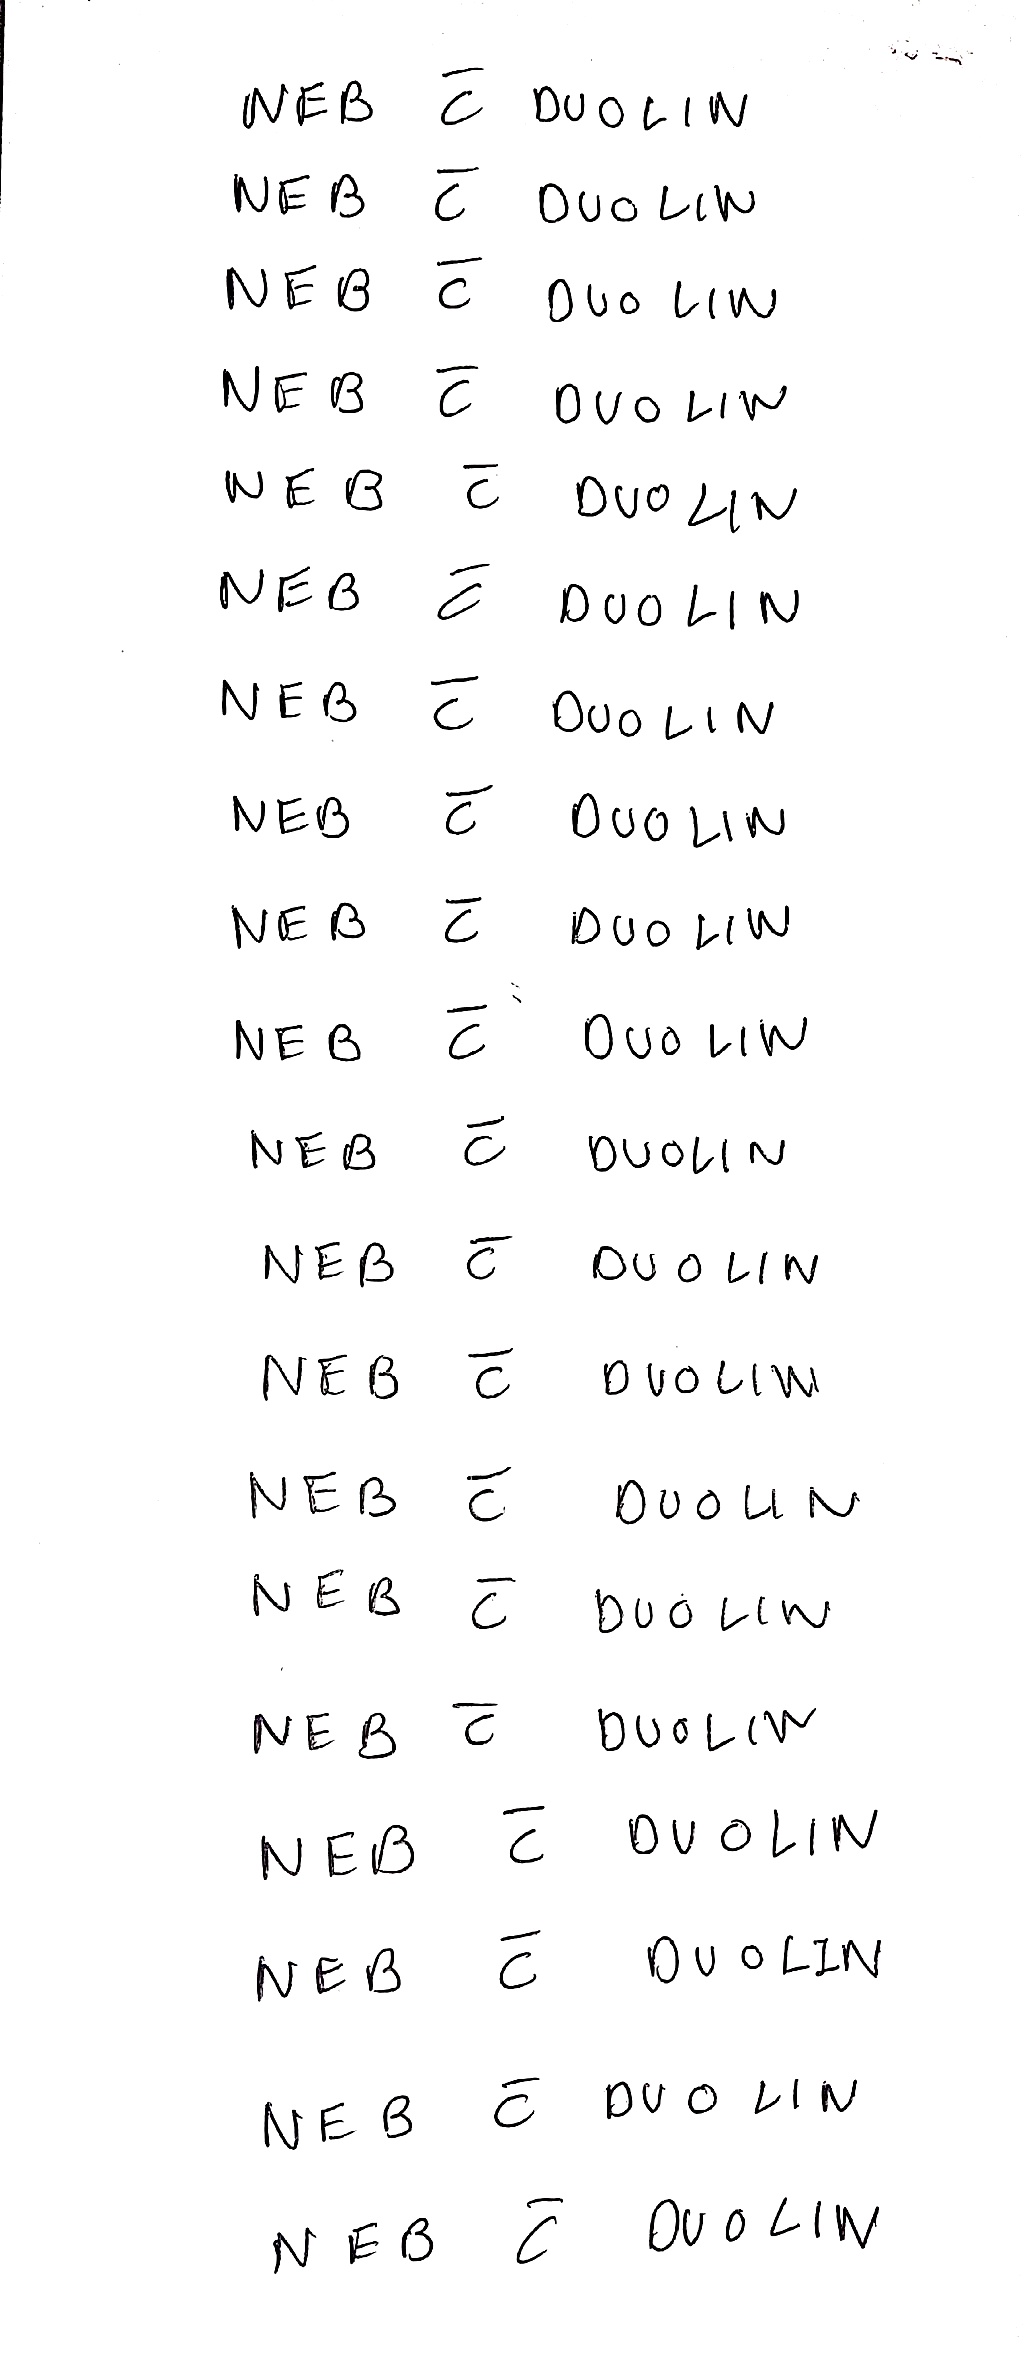 NEB c̄ DUOLIN
NEB c̄ DUOLIN
NEB c̄ DUOLIN
NEB c̄ DUOLIN
NEB c̄ DUOLIN
NEB c̄ DUOLIN
NEB c̄ DUOLIN
NEB c̄ DUOLIN
NEB c̄ DUOLIN
NEB c̄ DUOLIN
NEB c̄ DUOLIN
NEB c̄ DUOLIN
NEB c̄ DUOLIN
NEB c̄ DUOLIN
NEB c̄ DUOLIN
NEB c̄ DUOLIN
NEB c̄ DUOLIN
NEB c̄ DUOLIN
NEB c̄ DUOLIN
NEB c̄ DUOLIN